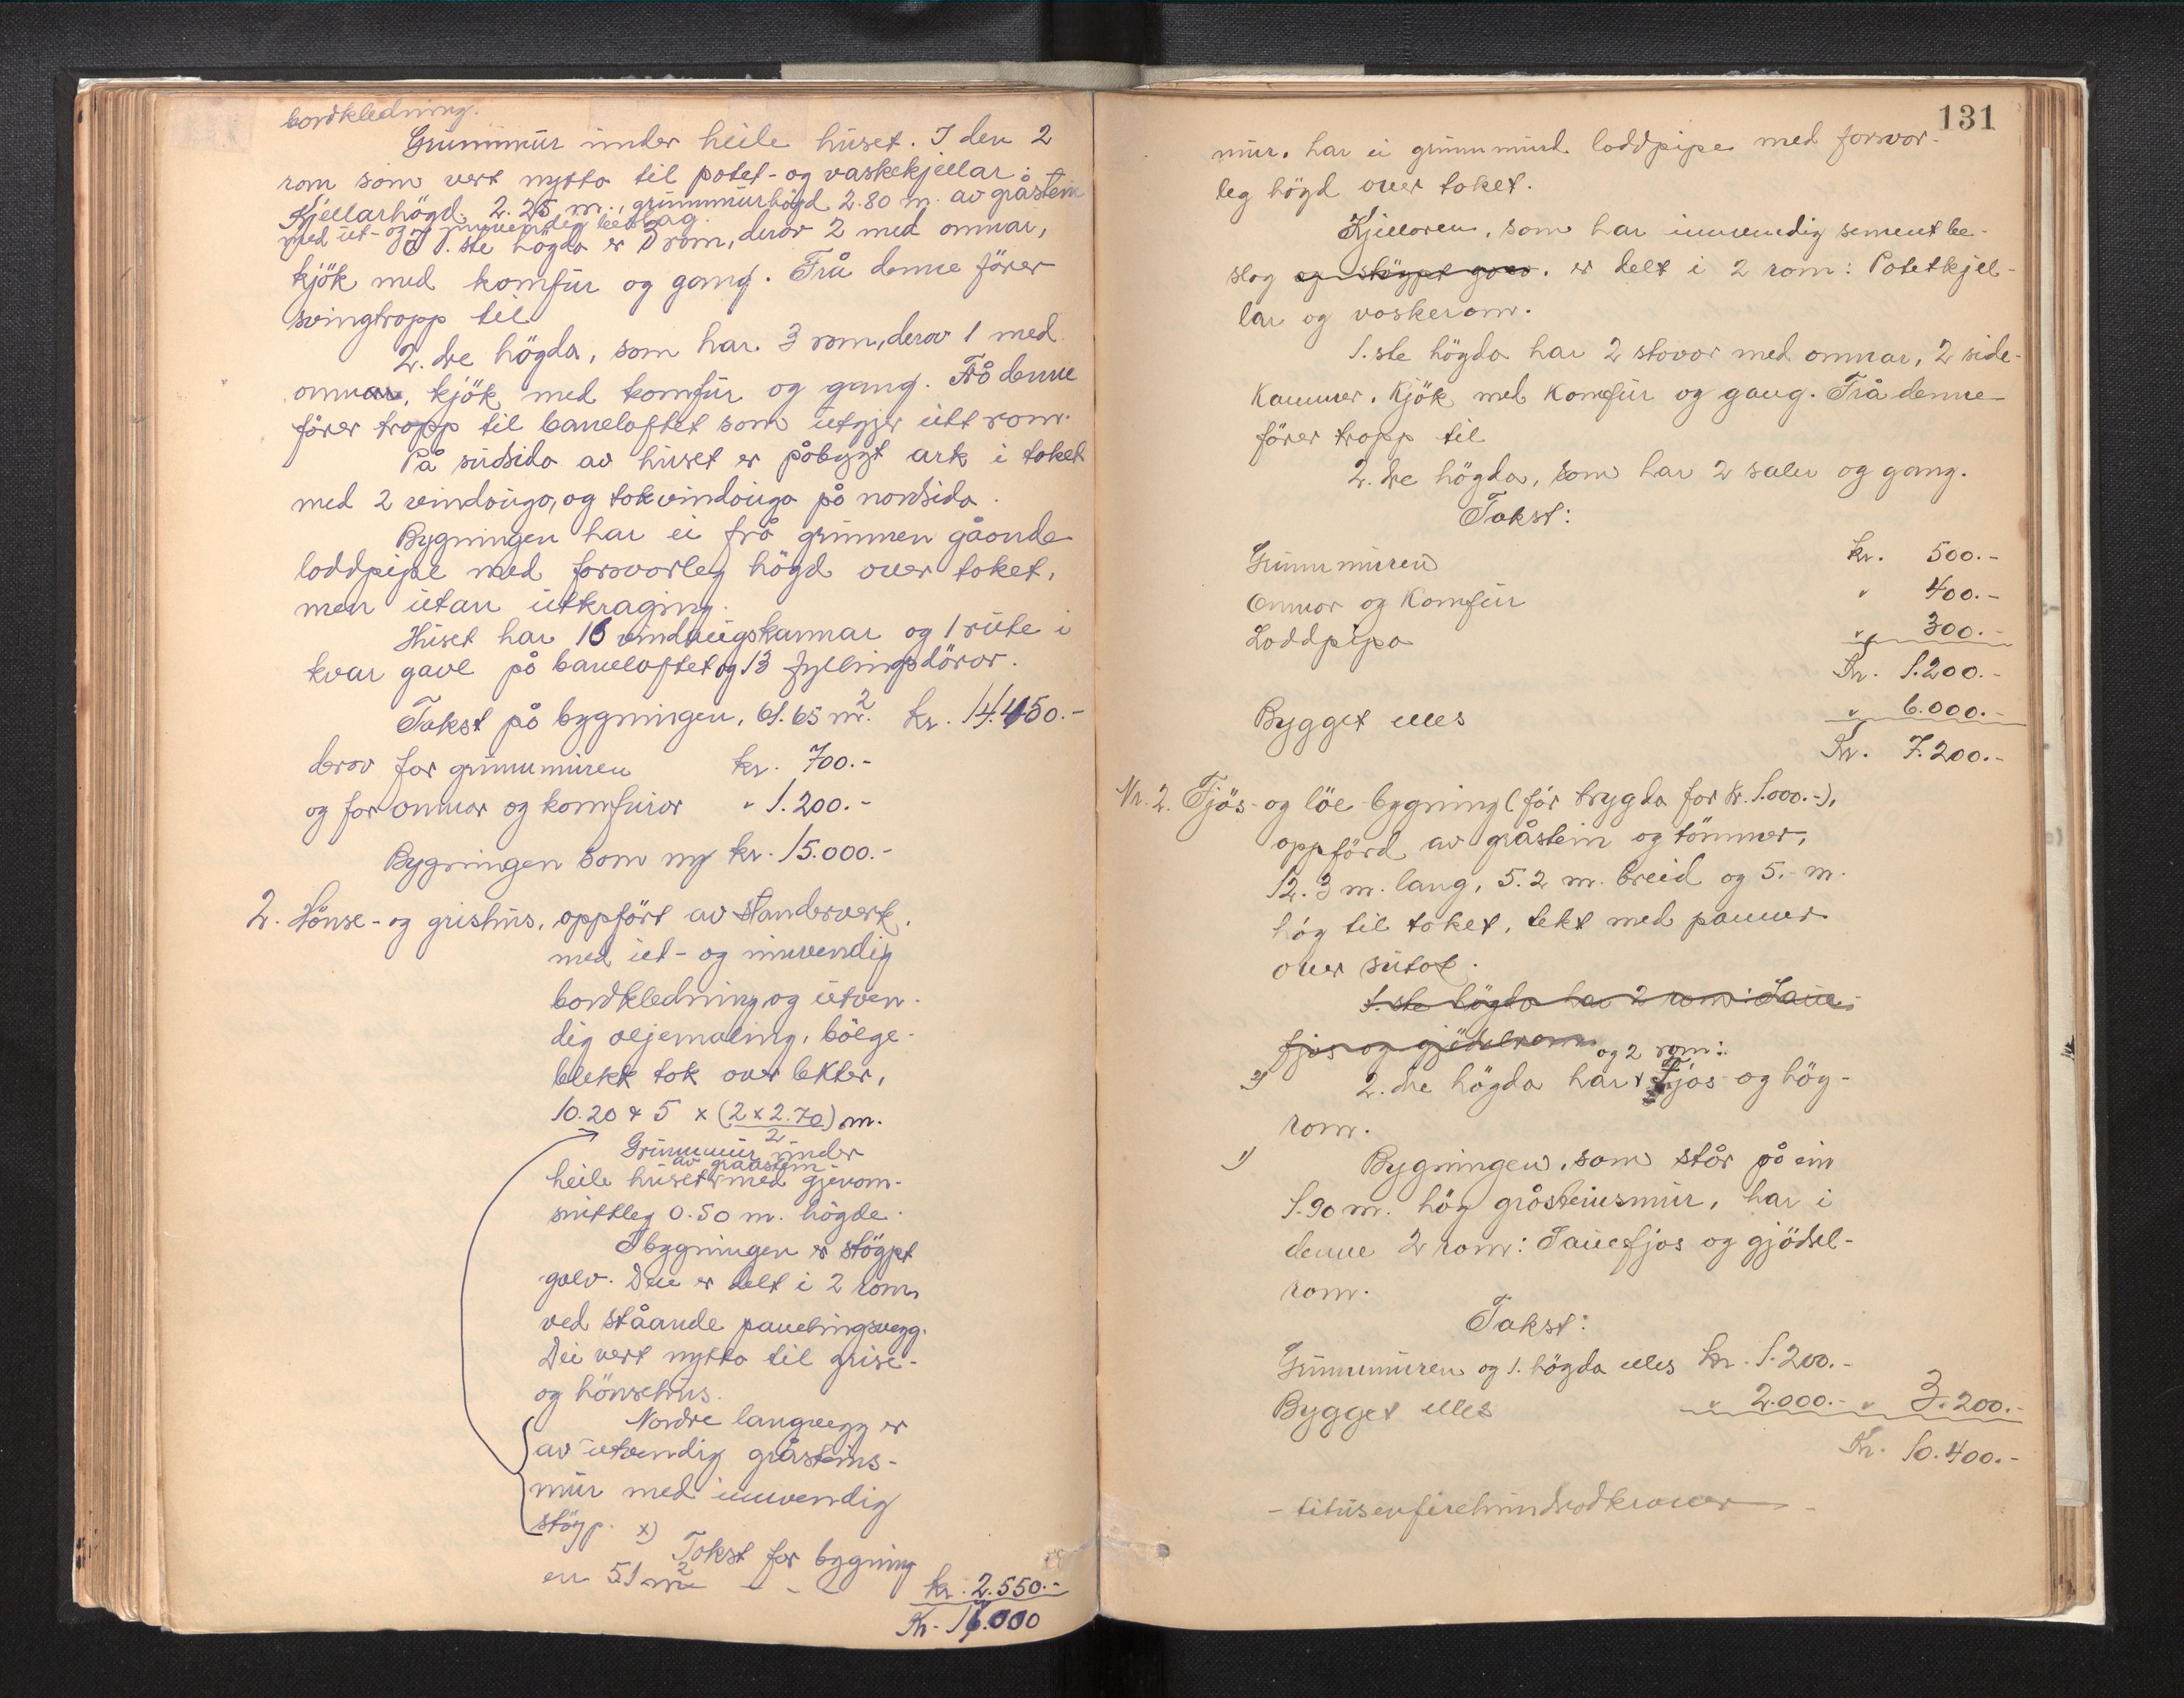 bordkledning.
Grunnmur under heile huset. I den 2
rom som vert nytta til potet- og vaskekjellar:
Kjellarhögd 2.25 m., grunnmurhögd 2.80 m. av gråstein
med ut- og innvendig beslag.
I 1.ste högda er 3 rom, derav 2 med omnar,
kjök med komfur og gang. Frå denne förer
svingtrapp til
2.dre högda, som har 3 rom, derav 1 med
omn, kjök med komfur og gang. Frå denne
förer trapp til baneloftet som utgjer itt rom.
På sudsida av huset er påbygt ark i taket
med 2 vindaugo, og takvindauga på nordsida.
Bygningen har ei frå grunnen gåande
loddpipe med forsvarleg högd over taket,
men utan utkraging.
Huset har 16 vindaugskarmar og 1 rute i
kvar gavl på baneloftet og 13 fyllingsdöror.
Takst på bygningen, 61.65 m². kr. 14.450.-
derav for grunnmuren kr. 700.-
og for omnar og komfuror " 1.200.-
Bygningen som ny kr. 15.000.-
2. Hönse- og grishus, oppfört av standerverk,
med ut- og innvendig
bordkledning og utven-
dig oljemaling, bölge-
blekk tak over lekter,
10.20 x 5 x (2 x 2.70) m.
2
Grunnmur under
av graastein
heile huset med gjenom-
snittleg 0.50 m. högde.
I bygningen er stöypt
golv. Den er delt i 2 rom
ved ståande panelingsvegg.
Dei vert nytta til grise-
og hönsehus.
Nordre langvegg er
av utvendig gråsteins-
mur med innvendig
stöyp. x)
Takst for bygning
en 51 m² - - - kr. 2.550.-
Kr. 16.000
131
mur. har ei grunnmurd loddpipe med forsvar-
leg högd over taket.
Kjellaren, som har innvendig sementbe-
slag og stöypt golv, er delt i 2 rom: Potetkjel-
lar og vaskerom.
1.ste högda har 2 stovor med omnar, 2 side-
kammer, kjök med komfur og gang. Frå denne
förer trapp til
2.dre högda, som har 2 saler og gang.
Takst:
Grunnmuren kr. 500.-
Omnar og komfur " 400.-
Loddpipa " 300.-
Kr. 1.200.-
Bygget elles " 6.000.-
Kr. 7.200.-
Nr. 2. Fjös- og löe bygning (för trygda for kr. 1.000.-),
oppförd av gråstein og tömmer,
12.3 m. lang, 5.2 m. breid og 5.- m.
hög til taket, tekt med panner
over sutak.
1.ste högda har 2 rom: Saue-
fjos og gjödselrom
og 2 rom:
2) 2.dre högda har Fjos og höy-
rom.
1) Bygningen, som står på ein
1.90 m. hög gråsteinsmur, har i
denne 2 rom: Sauefjos og gjödsel-
rom.
Takst:
Grunnmuren og 1. högda elles kr. 1.200.-
Bygget elles " 2.000.- " 3.200.-
Kr. 10.400.-
- titusenfirehundradkroner -